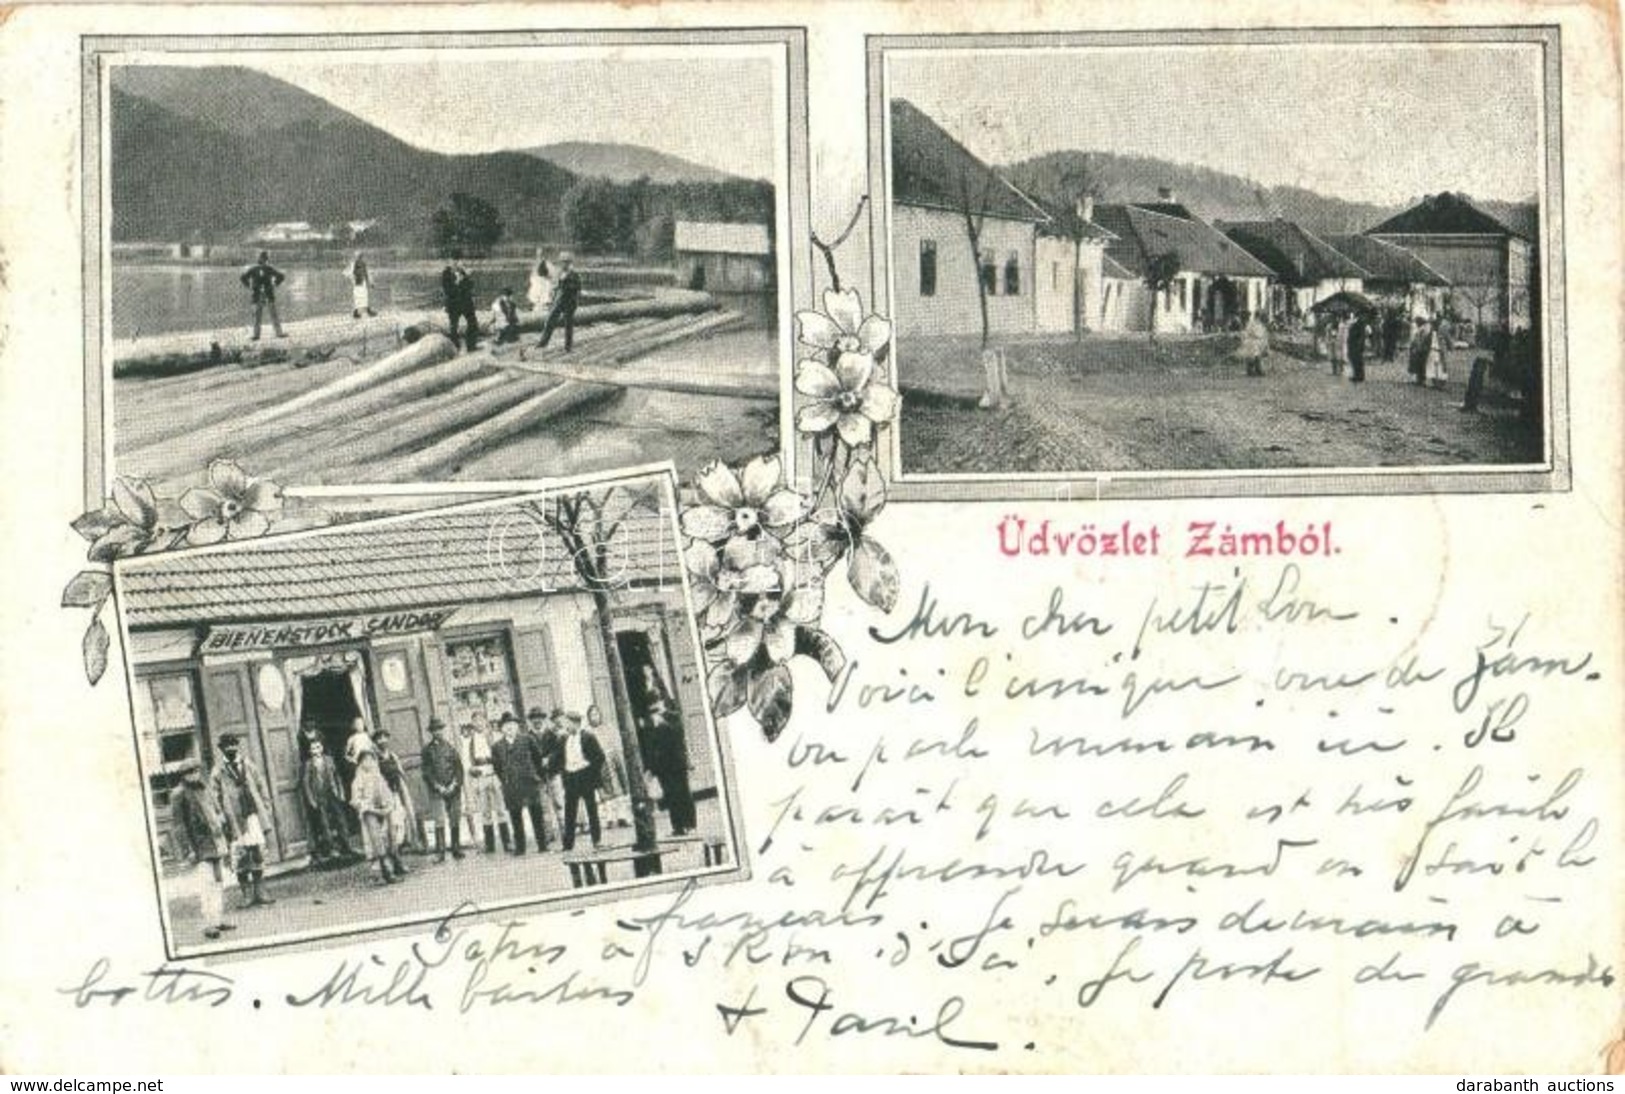 BIENENSTOCK SANDOR
Üdvözlet Zámból.
Mon cher petit Lou.
Voici l'unique vue de Zám.
on parle roumain ici. Il
parait que cela est très facile
à apprendre quand on sait le
français. Je serais demain à
à 5 Km d'ici. Je porte de grandes
bottes. Mille baisers
de-campe.net
darabanth auctions